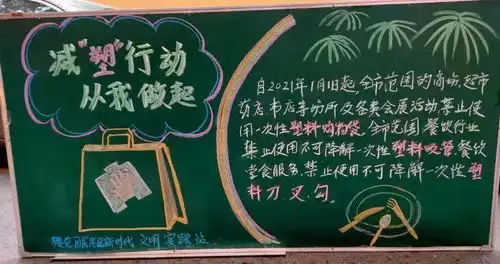 减"塑"行动
从我做起
自2021年1月1日起,全市范围的商场、超市
药店、书店等场所及各类会展活动禁止使
用一次性塑料购物袋。全市范围餐饮行业
禁止使用不可降解一次性塑料吸管。餐饮
堂食服务,禁止使用不可降解一次性塑
料刀、叉、勺。
新时代文明实践站